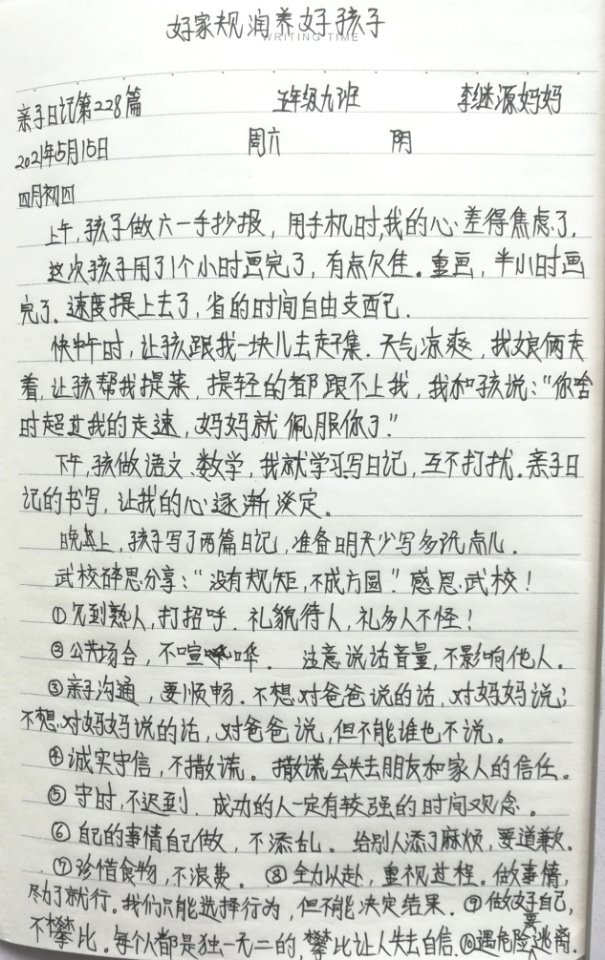 好家规润养好孩子
WRITING TIME
亲子日记第228篇 五年级九班 李继源妈妈
2021年5月15日 周六 阴
四月初四
上午,孩子做六一手抄报,用手机时,我的心差得焦虑了,
这次孩子用了1个小时画完了,有点欠佳.重画,半小时画
完了.速度提上去了,省的时间自由支配己.
快中午时,让孩跟我一块儿去赶集.天气凉爽,我娘俩走
着,让孩帮我提菜,提轻的都跟不上我,我和孩说:“你啥
时超过我的走速,妈妈就佩服你了”
下午,孩做语文、数学,我就学习写日记,互不打扰.亲子日
记的书写,让我的心逐渐淡定。
晚上,孩子写了两篇日记,准备明天少写多玩点儿.
武校研思分享:“没有规矩,不成方圆”感恩武校!
①见到熟人,打招呼.礼貌待人,礼多人不怪!
②公共场合,不喧哗.注意说话音量,不影响他人.
③亲子沟通,要顺畅.不想对爸爸说的话,对妈妈说;
不想对妈妈说的话,对爸爸说,但不能谁也不说。
④诚实守信,不撒谎。撒谎会失去朋友和家人的信任。
⑤守时,不迟到.成功的人一定有较强的时间观念。
⑥自己的事情自己做,不添乱.给别人添了麻烦,要道歉.
⑦珍惜食物,不浪费.⑧全力以赴,重视过程.做事情,
尽力了就行.我们只能选择行为,但不能决定结果.⑨做好自己,
不攀比.每个人都是独一无二的,攀比让人失去自信.⑩遇危险要逃离.